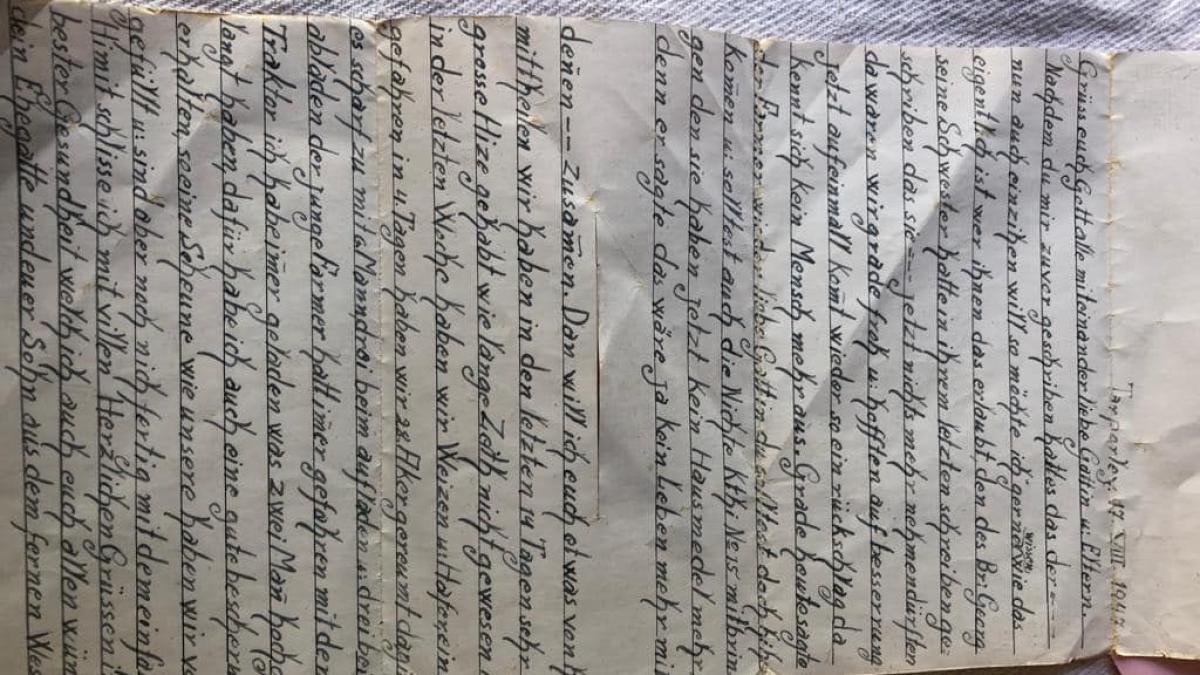 Tarparley, 17. VIII. 1947
Grüss euch Gott alle miteinander liebe Gattin u. Eltern.
Nachdem du mir zuver geschriben hattes das der ---
nun auch einzihen will so möchte ich gerne wissen wie da
eigentlich ist wer ihnen das erlaubt, den des Br. Georg
seine Schwester hatte in ihrem letzten schreiben ge-
schriben da sie --- jetzt nichts mehr nehmen dürften
da waren wir grade froh u. hofften auf besserrung
jetzt aufeinmall komt wieder so ein rückschlag da
kennt sich kein Mensch mehr aus. Grade heute sagte
der Farmer wieder liebe Gattin du solltest doch
komen u. solltest auch die Nichte Kth. Neis mitbrin
gen den sie haben jetzt kein Hausmedel mehr
denn er sagte das wäre ja kein Leben mehr mi
denen --- zusamen. Dan will ich euch etwas von
mittheilen wir haben in den letzten 14 Tagen sehr
grosse Hize gehabt wie lange Zeith nicht gewesen
in der letzten Woche haben wir Weizen u. Hafer ein
gefahren in 4 Tagen haben wir 28 Aker gereumt da
es scharf zu mit 4 Mann drei beim aufladen u. drei bei
abladen der junge Farmer hatt imer gefahren mit den
Traktor ich habe imer geladen was zwei Man
langt haben dafür habe ich auch eine gute bescherm
erhalten, so eine Scheune wie unsere haben wir v
gefüllt u. sind aber noch nich fertig mit dem einfa
Himit schlisse ich mit villen Herzlichen Grüssen
bester Gesundheit welch ich auch euch allen wün
dein Ehegatte und euer Sohn aus dem fernen Wes